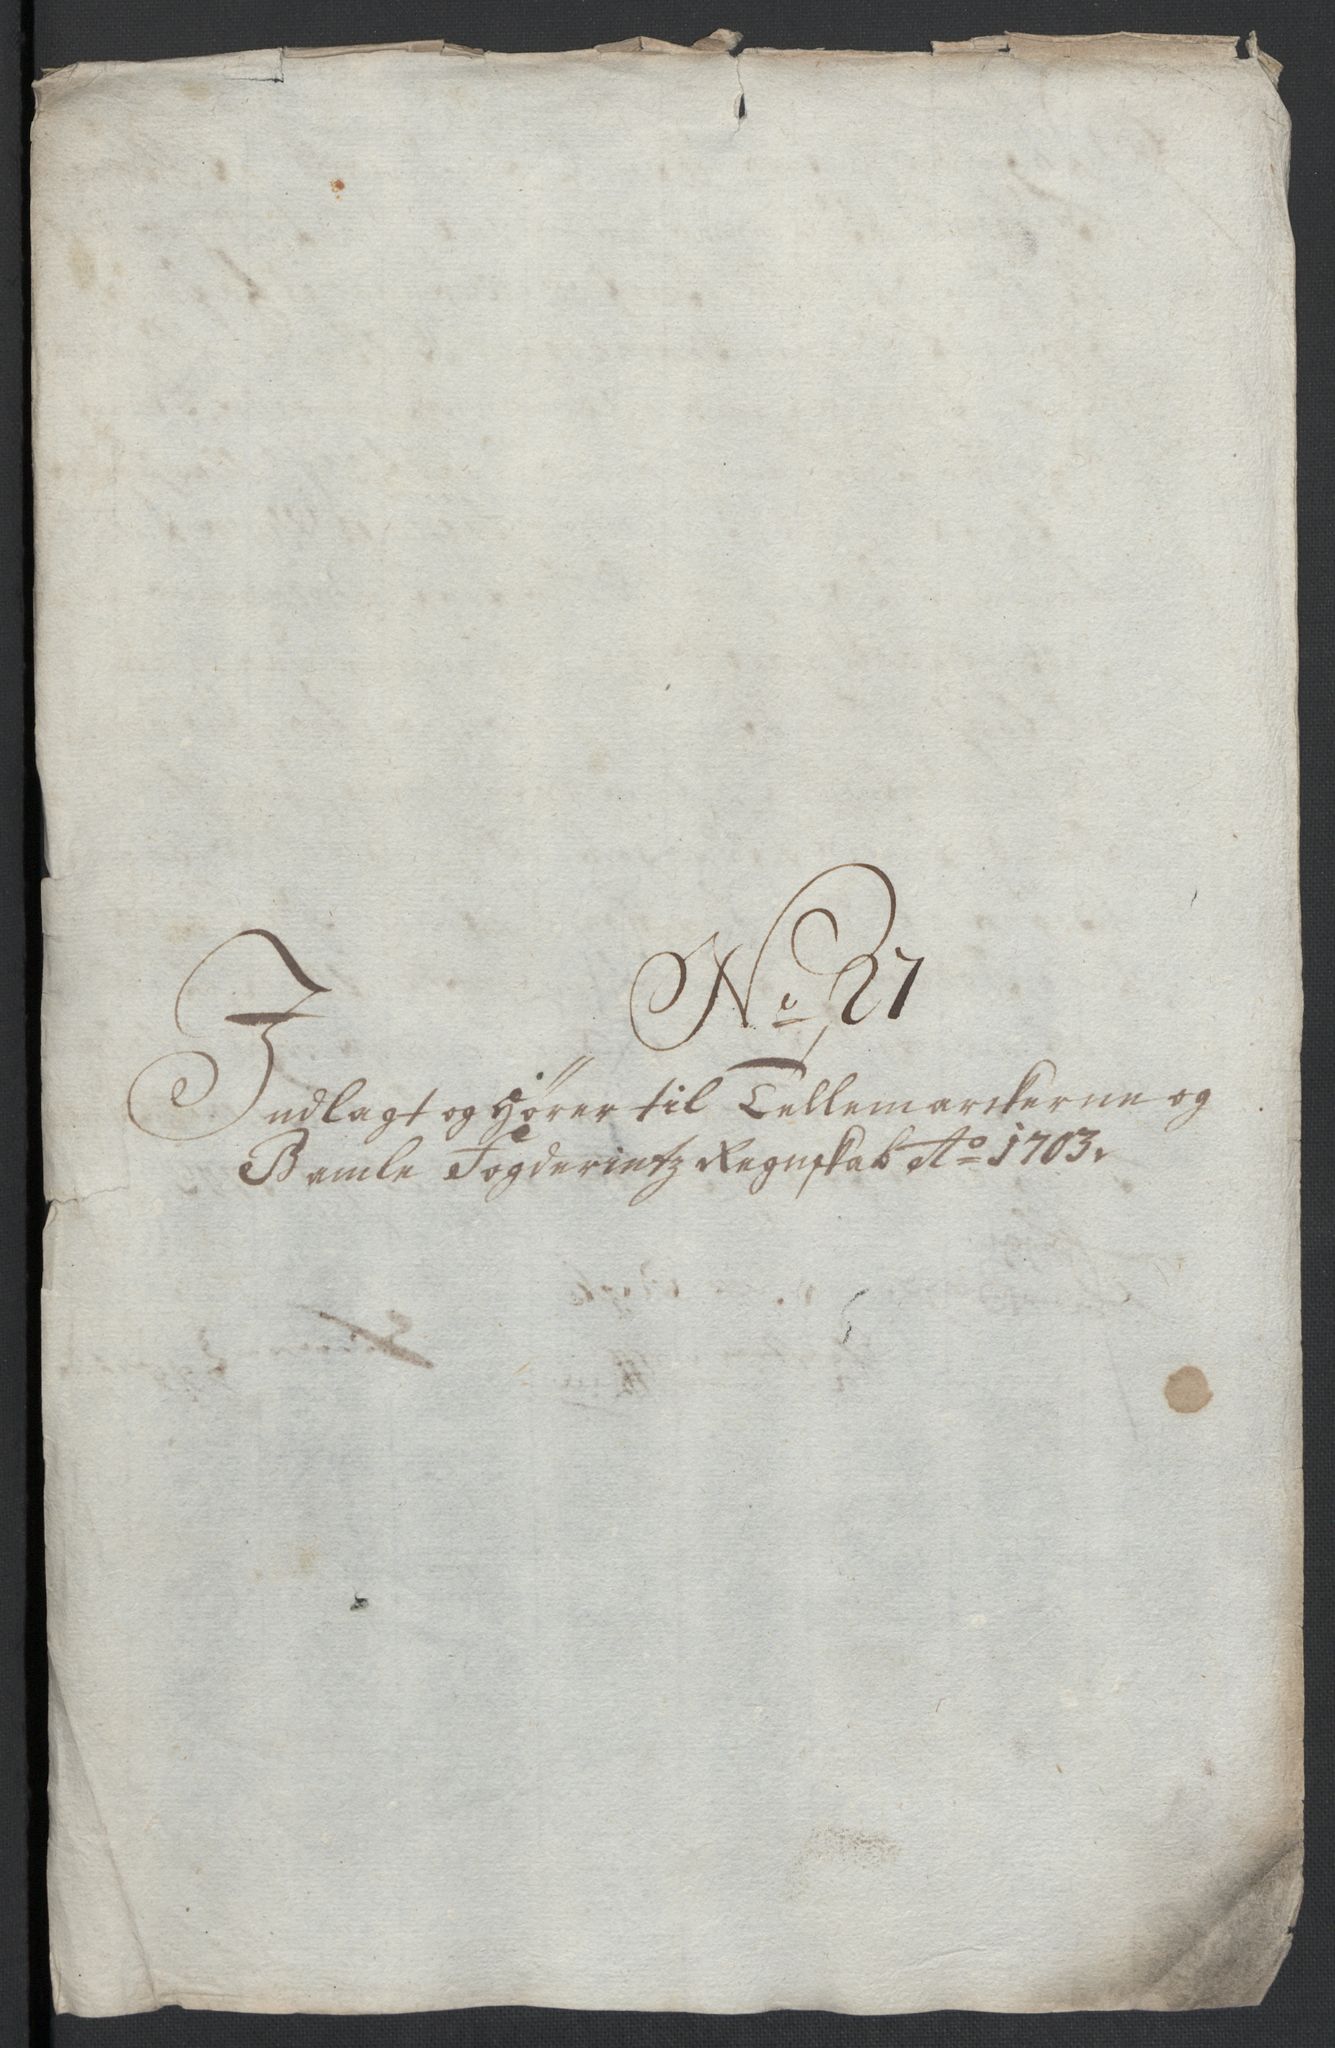 No 27
Indlagt og hører til Tellemarckerne og
Bamle Fogderietz Regnskab Ao 1703.